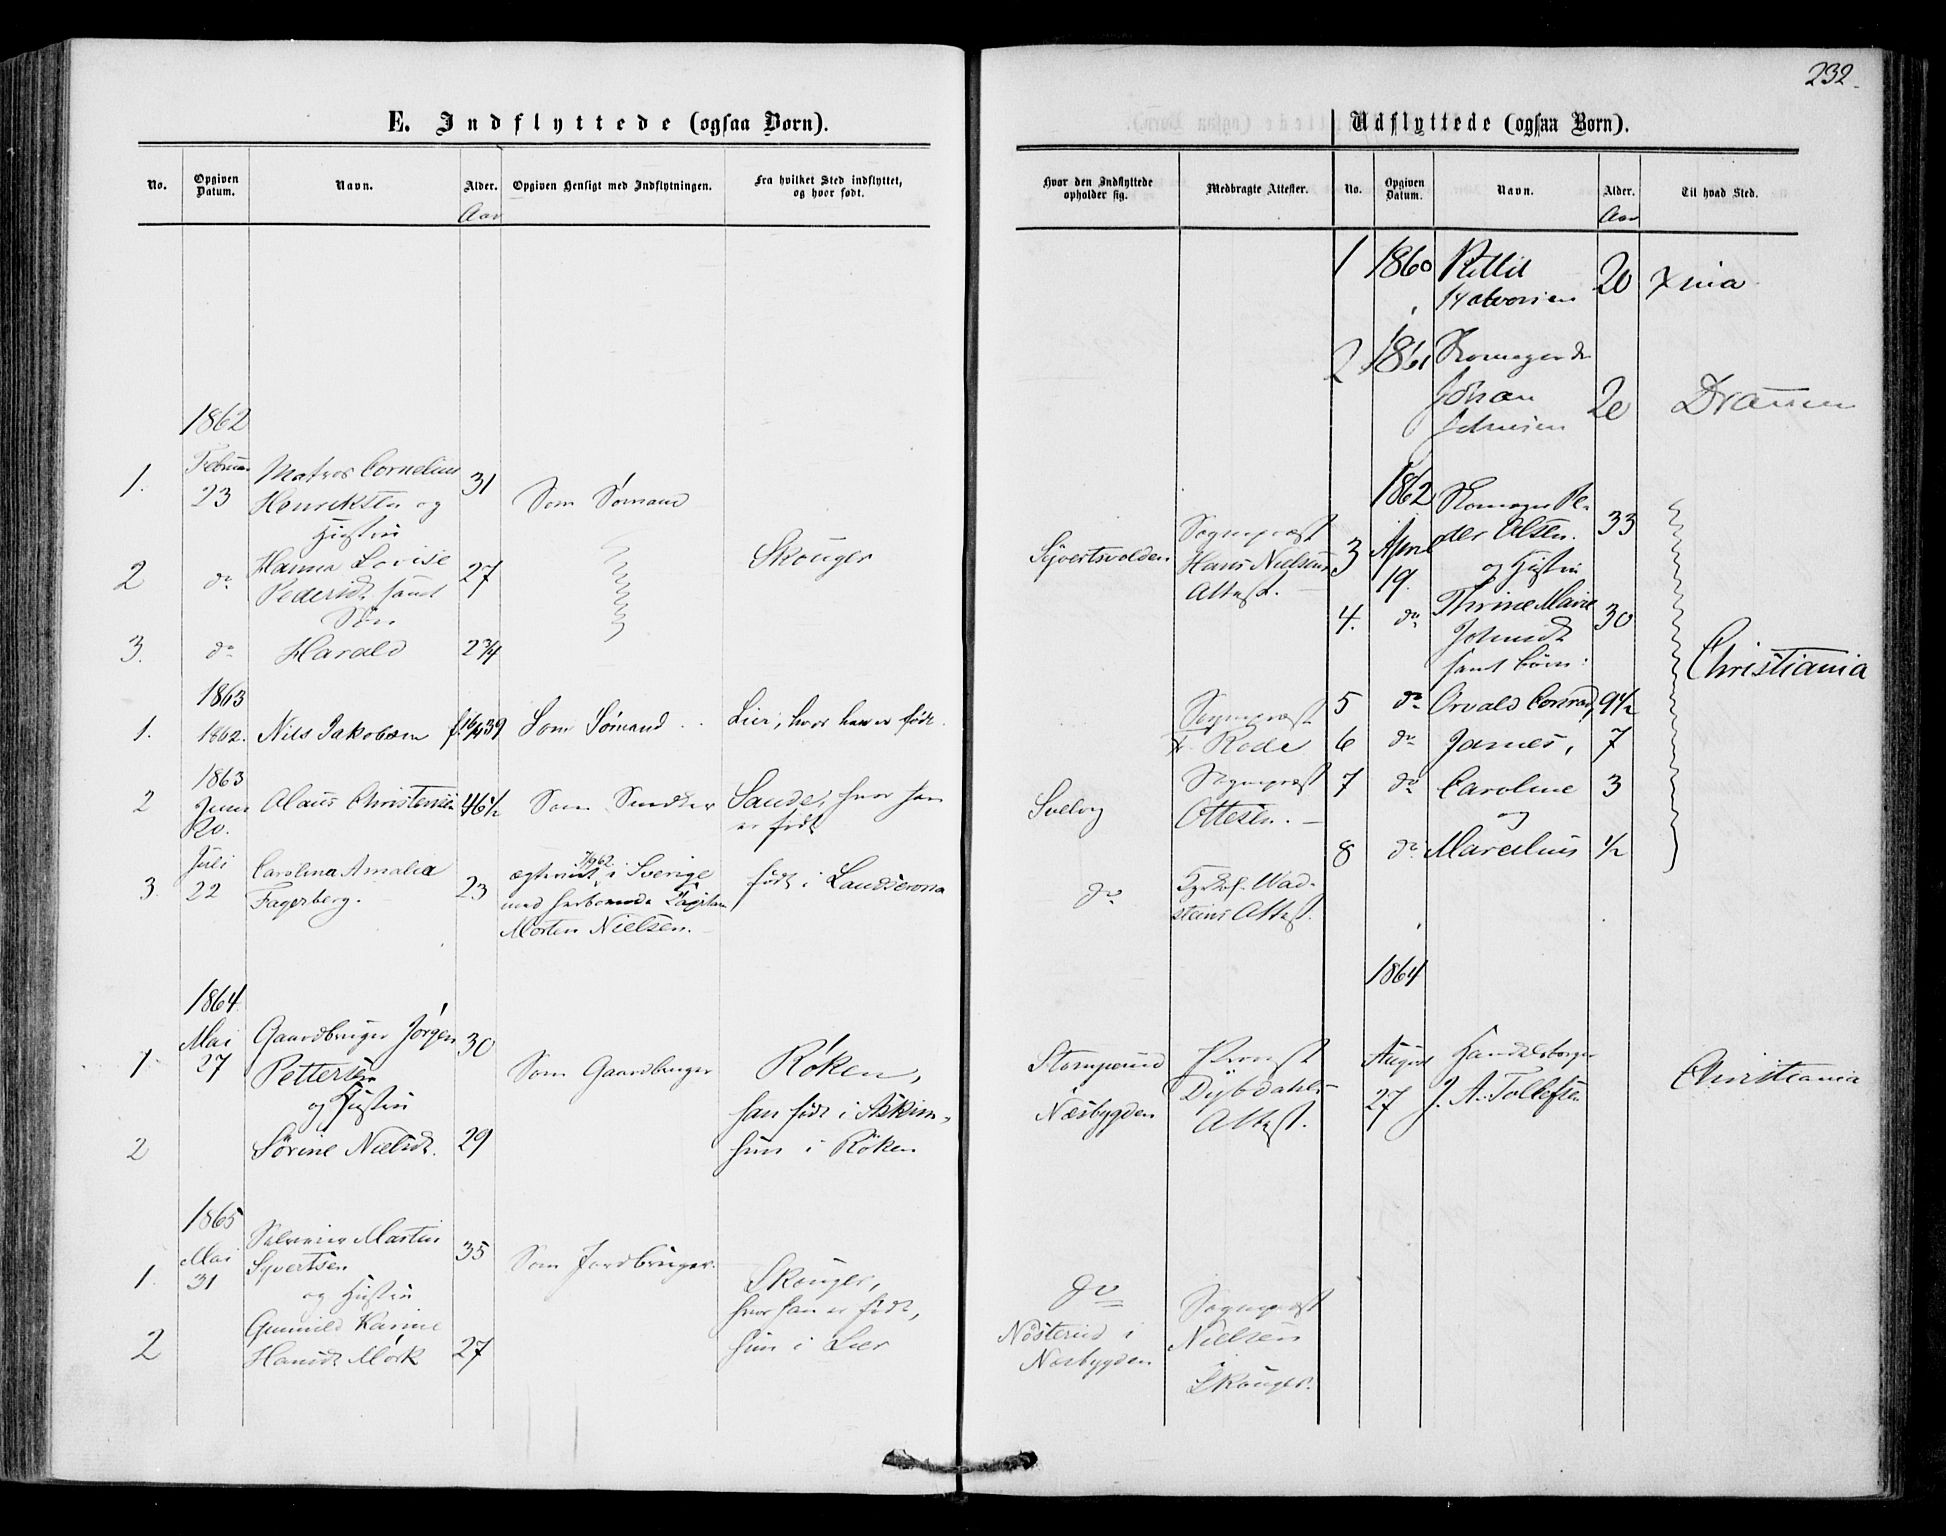 232.
E. Indflyttede (ogsaa Børn).
No.
Opgiven
Datum.
Navn.
Alder.
Aar
Opgiven Hensigt med Indflytningen.
Fra hvilket Sted indflyttet,
og hvor født.
1862
1.
Februar
23
Matros Cornelius
Henriksen og
Hustru
31
Som Sømand
2
do
Hanna Lovise
Pedersdt. samt
Søn
27
Skouger
3.
do
Harald
2 3/4
1863
1.
1862.
Nils Jakobsen
f. 16/4 39
Som Sømand
Lier, hvor han er født.
1863
2
Juni
20.
Olaus Christensen
46 1/2
Som Snedker
Sande, hvor han
er født
3.
Juli
22
Carolina Amalia
Fagerberg.
23
ægteviet i Sverige
med herboende Kapitain
Morten Nielsen.
født i Landscrona
1864
1.
Mai
27
Gaardbruger Jørgen
Pettersen
og Hustru
30
Som Gaardbruger
Røken,
han født i Askim,
2
Sørine Nielsdt.
29
hun i Røken
1865
1.
Mai
31
Selveier Martin
Syvertsen
og Hustru
35
Som Jordbruger.
Skouger,
hvor han er født,
2
Gunnild Karine
Hansdt. Mørk
27
hun i Lier
Hvor den Indflyttede
opholder sig.
Medbragte Attester.
Syvertsvolden
Sognepræst
Hans Nielsens
Attest.
Sognepræst
Rode
Svelvig
Sognepræst
Ottesen.
do
Kyrkoh. Wad-
steins Attest.
Stomperud
Næsbygden
Provst
Dybdahls
Attest.
do
Nøsterud i
Næsbygden
Sognepræst
Nielsen
Skouger.
Udflyttede (ogsaa Børn).
No.
Opgiven
Datum.
Navn.
Alder.
Aar
Til hvad Sted.
1
1860
Kittil
Halvorsen
20
Xnia
2
1861
Skomagersv.
Johan
Johnsen
20
Drammen
1862
3
April
19.
Skomager Pe-
der Olsen.
og Hustru
33
4.
do
Thrine Marie
Johnsdt.
samt Børn:
30
Christiania
5
do
Orvald Conrad,
9 1/2
6
do
James,
7
7
do
Caroline
og
3
8
do
Marcelius
1/2
1864
August
27
Handelsborger
J. A. Tollefsen
Christiania